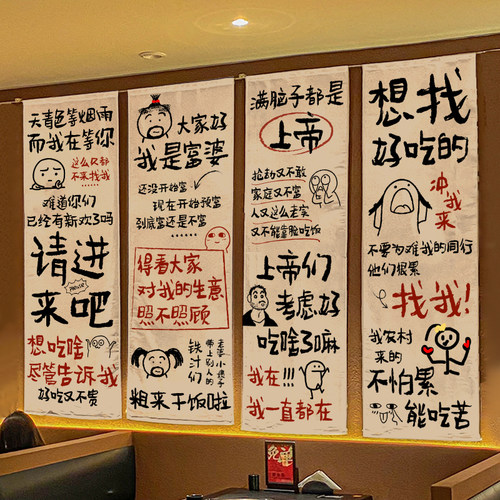 天青色等烟雨
而我在等你
这么久都
不来找我
……
难道你们
已经有新欢了吗
请进
来吧
想吃啥
尽管告诉我
好吃又不贵
大家好
我是富婆
还没开始富
现在开始致富
到底富还是不富
……
得看大家
对我的生意
照不照顾
铁汁们
带上别人的
老婆小孩子
粗来干饭啦
满脑子都是
上帝
抢劫又不敢
家庭又不富
人又这么老实
又不能靠脸吃饭
上帝们
考虑好
吃啥了嘛
我在!!!
我一直都在
想找
好吃的
冲我来
不要为难我的同行
他们很累
找我!
我农村
来的
不怕累
能吃苦